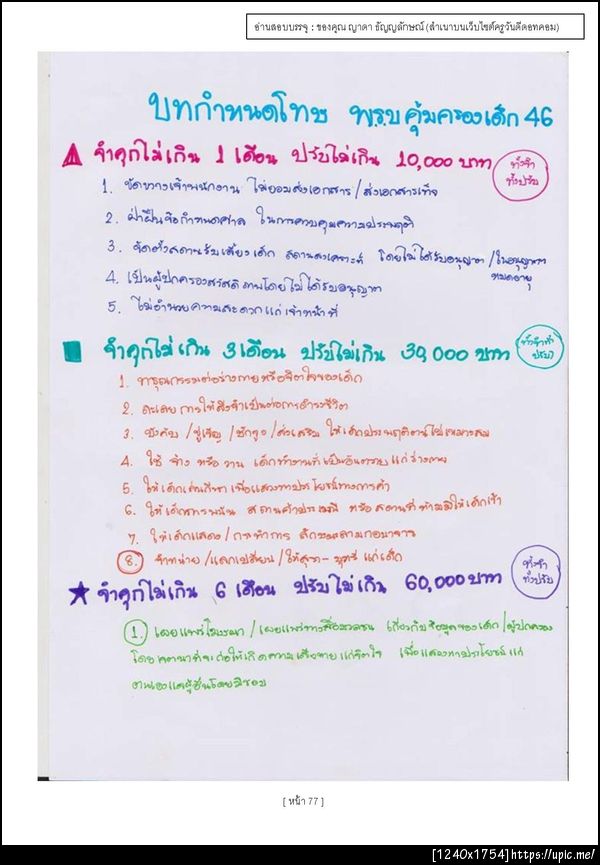 อ่านสอบบรรจุ : ของคุณ ญาดา ธัญญลักษณ์ (สำเนาบนเว็บไซต์ครูวันดีดอทคอม)
บทกำหนดโทษ พรบคุ้มครองเด็ก 46
จำคุกไม่เกิน 1 เดือน ปรับไม่เกิน 10,000 บาท
ทั้งจำ
ทั้งปรับ
1. ขัดขวางเจ้าพนักงาน ไม่ยอมส่งเอกสาร / ส่งเอกสารเท็จ
2. ฝ่าฝืนข้อกำหนดศาล ในการควบคุมความประพฤติ
3. จัดตั้งสถานรับเลี้ยงเด็ก สถานสงเคราะห์ โดยไม่ได้รับอนุญาต / ใบอนุญาต
หมดอายุ
4. เป็นผู้ปกครองสวัสดิภาพโดยไม่ได้รับอนุญาต
5. ไม่อำนวยความสะดวกแก่เจ้าหน้าที่
จำคุกไม่เกิน 3 เดือน ปรับไม่เกิน 30,000 บาท
1. ทารุณกรรมต่อร่างกายหรือจิตใจของเด็ก
2. ละเลย การให้สิ่งจำเป็นต่อการดำรงชีวิต
3. บังคับ / ขู่เข็ญ / ชักจูง / ส่งเสริม ให้เด็กประพฤติตนไม่เหมาะสม
4. ใช้ จ้าง หรือ วาน เด็กทำงานที่เป็นอันตรายแก่ร่างกาย
5. ให้เด็กเล่นกีฬา เพื่อแสวงหาประโยชน์ทางการค้า
6. ให้เด็กการพนัน สถานค้าประเวณี หรือ สถานที่ห้ามมิให้เด็กเข้า
7. ให้เด็กแสดง / กระทำการ ลักษณะลามกอนาจาร
8. จำหน่าย / แลกเปลี่ยน / ให้สุรา - บุหรี่ แก่เด็ก
จำคุกไม่เกิน 6 เดือน ปรับไม่เกิน 60,000 บาท
ทั้งจำ
ทั้งปรับ
1. เผยแพร่โฆษณา / เผยแพร่ทางสื่อมวลชน เกี่ยวกับข้อมูลของเด็ก / ผู้ปกครอง
โดยเจตนาที่จะก่อให้เกิดความเสียหายแก่จิตใจ เพื่อแสวงหาประโยชน์แก่
ตนเองและผู้อื่นโดยมิชอบ
[ หน้า 77 ]
[1240x1754]https://upic.me/